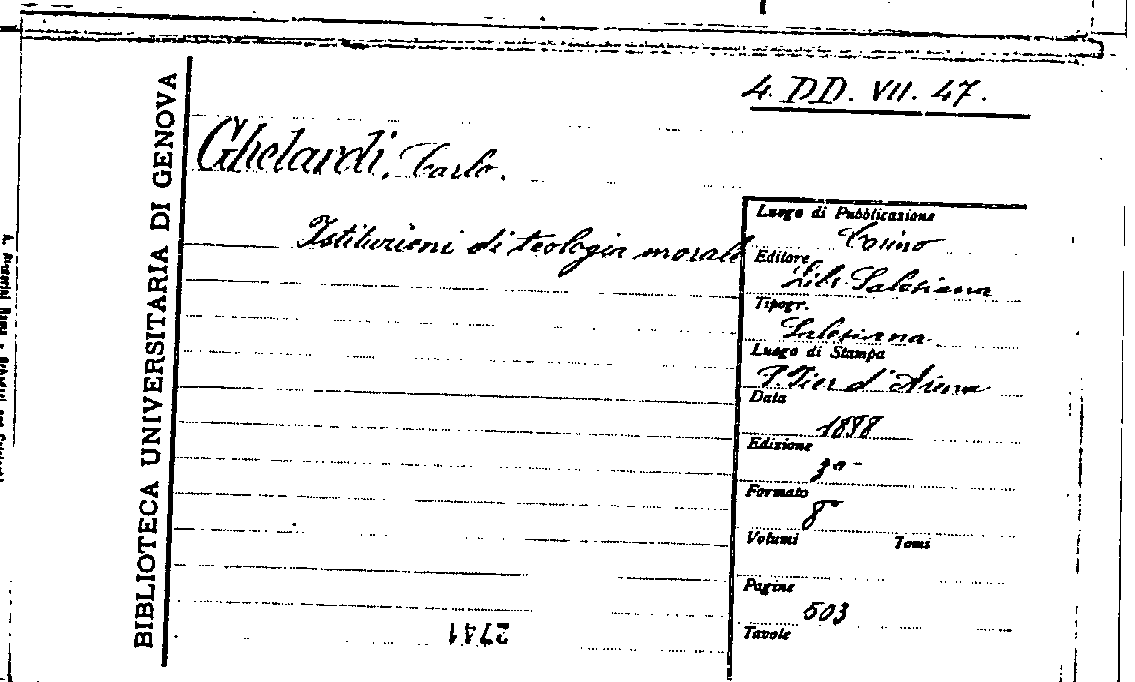 4. DD. VII. 47.
BIBLIOTECA UNIVERSITARIA DI GENOVA
Ghelardi, Carlo.
Istituzioni di teologia morale
Luogo di Pubblicazione
Torino
Editore
Libr. Salesiana
Tipogr.
Salesiana
Luogo di Stampa
S. Pier d'Arena
Data
1898
Edizione
3a
Formato
8°
Volumi Tomi
Pagine
503
Tavole
2741